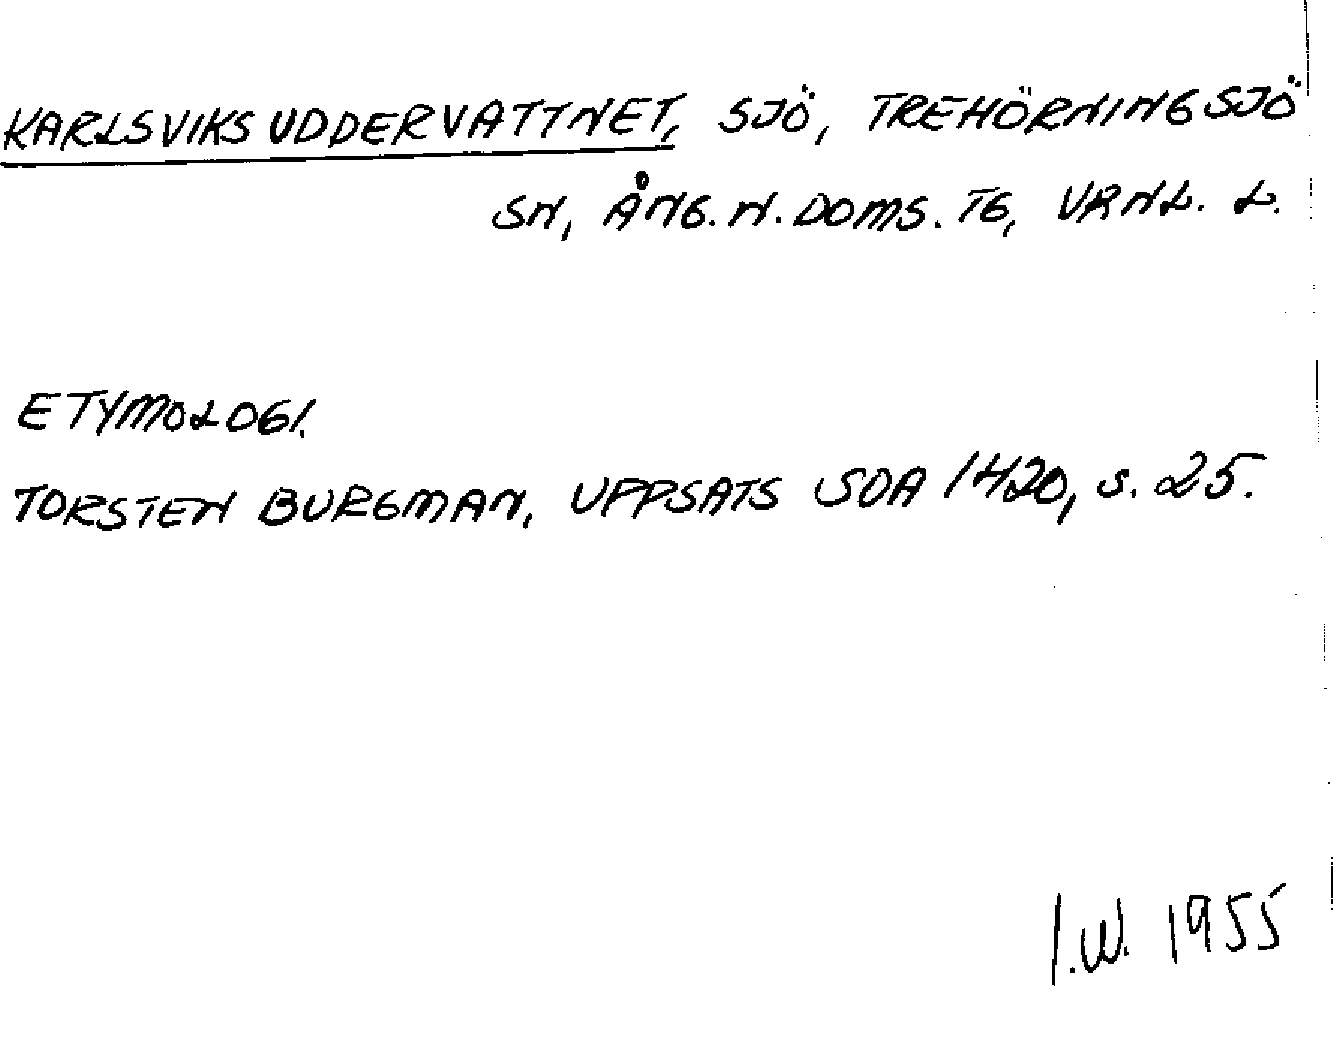 KARLSVIKSUDDERVATTNET, SJÖ, TREHÖRNINGSJÖ
SN, ÅNG. N. DOMS. TG, VRNL. L.
ETYMOLOGI.
TORSTEN BURGMAN, UPPSATS SOA 1420, S. 25.
I.W. 1955